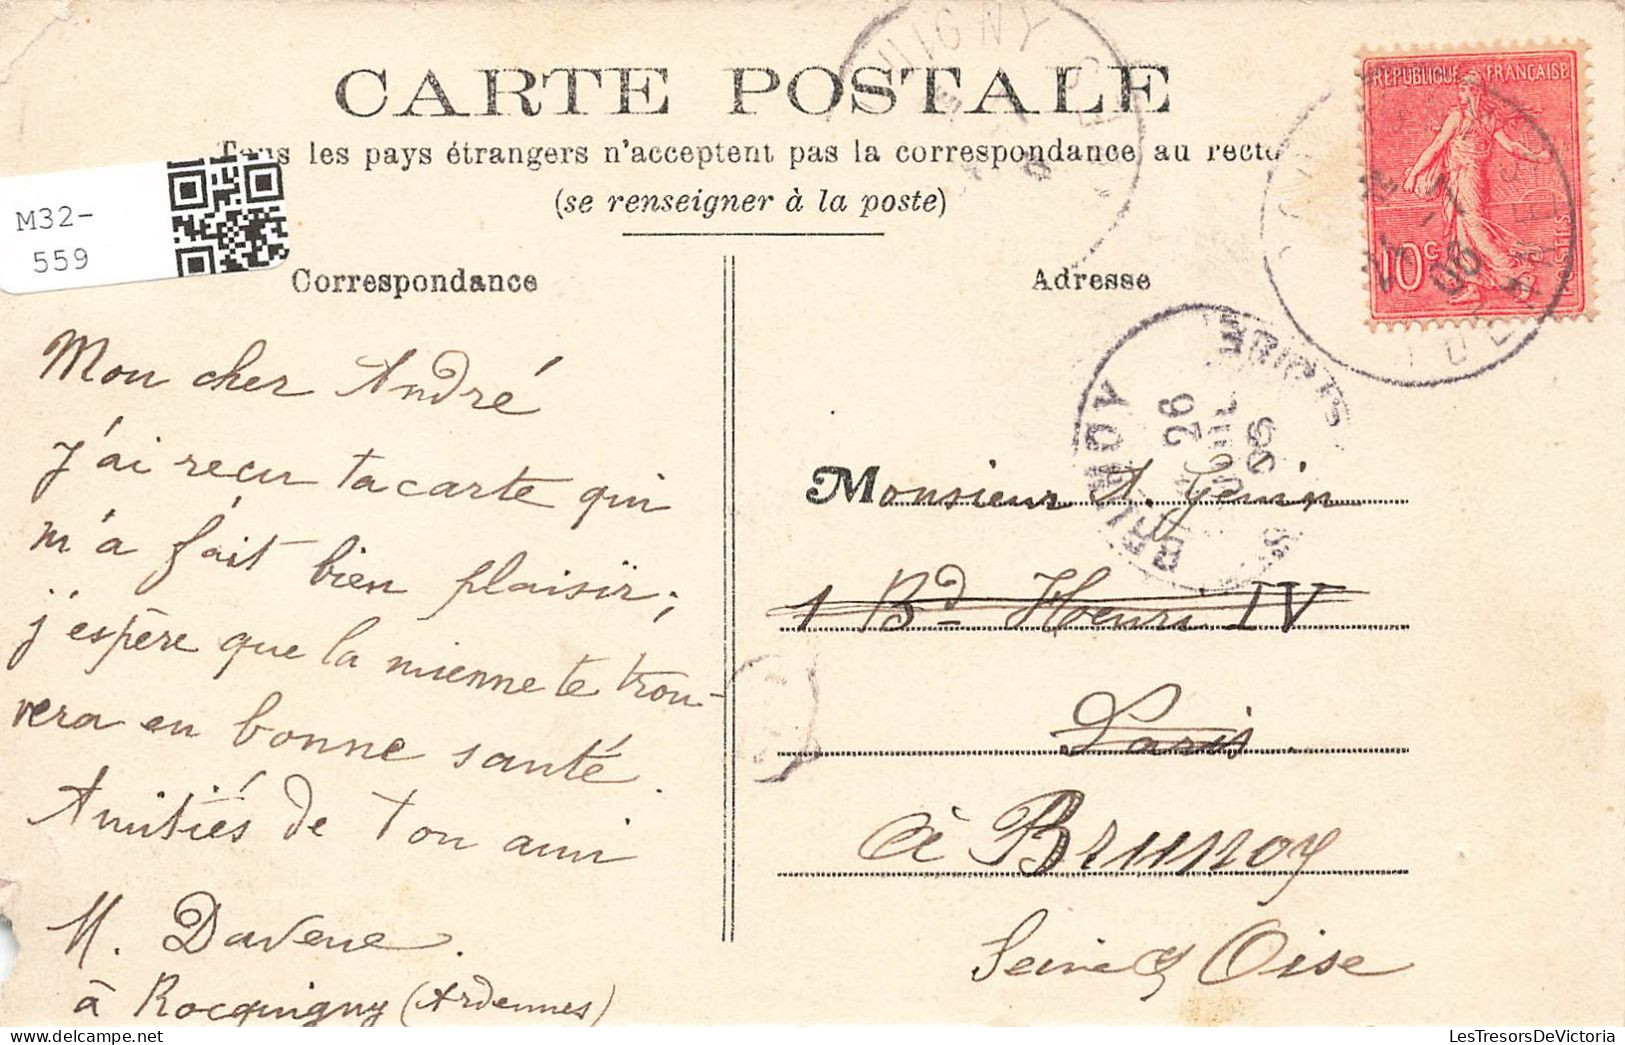 CARTE POSTALE
Tous les pays étrangers n'acceptent pas la correspondance au recto
(se renseigner à la poste)
M32-
559
Correspondance
Adresse
REPUBLIQUE FRANÇAISE
10c
POSTES
BRUNOY
26
JUIL
06
Mon cher André
J'ai reçu ta carte qui
m'a fait bien plaisir;
j'espère que la mienne te trou-
vera en bonne santé.
Amitiés de ton ami
M. Davene.
à Rocquigny (Ardennes)
Monsieur A. Genin
1 Bd Henri IV
Paris.
à Brunoy
Seine & Oise
LesTresorsDeVictoria.com